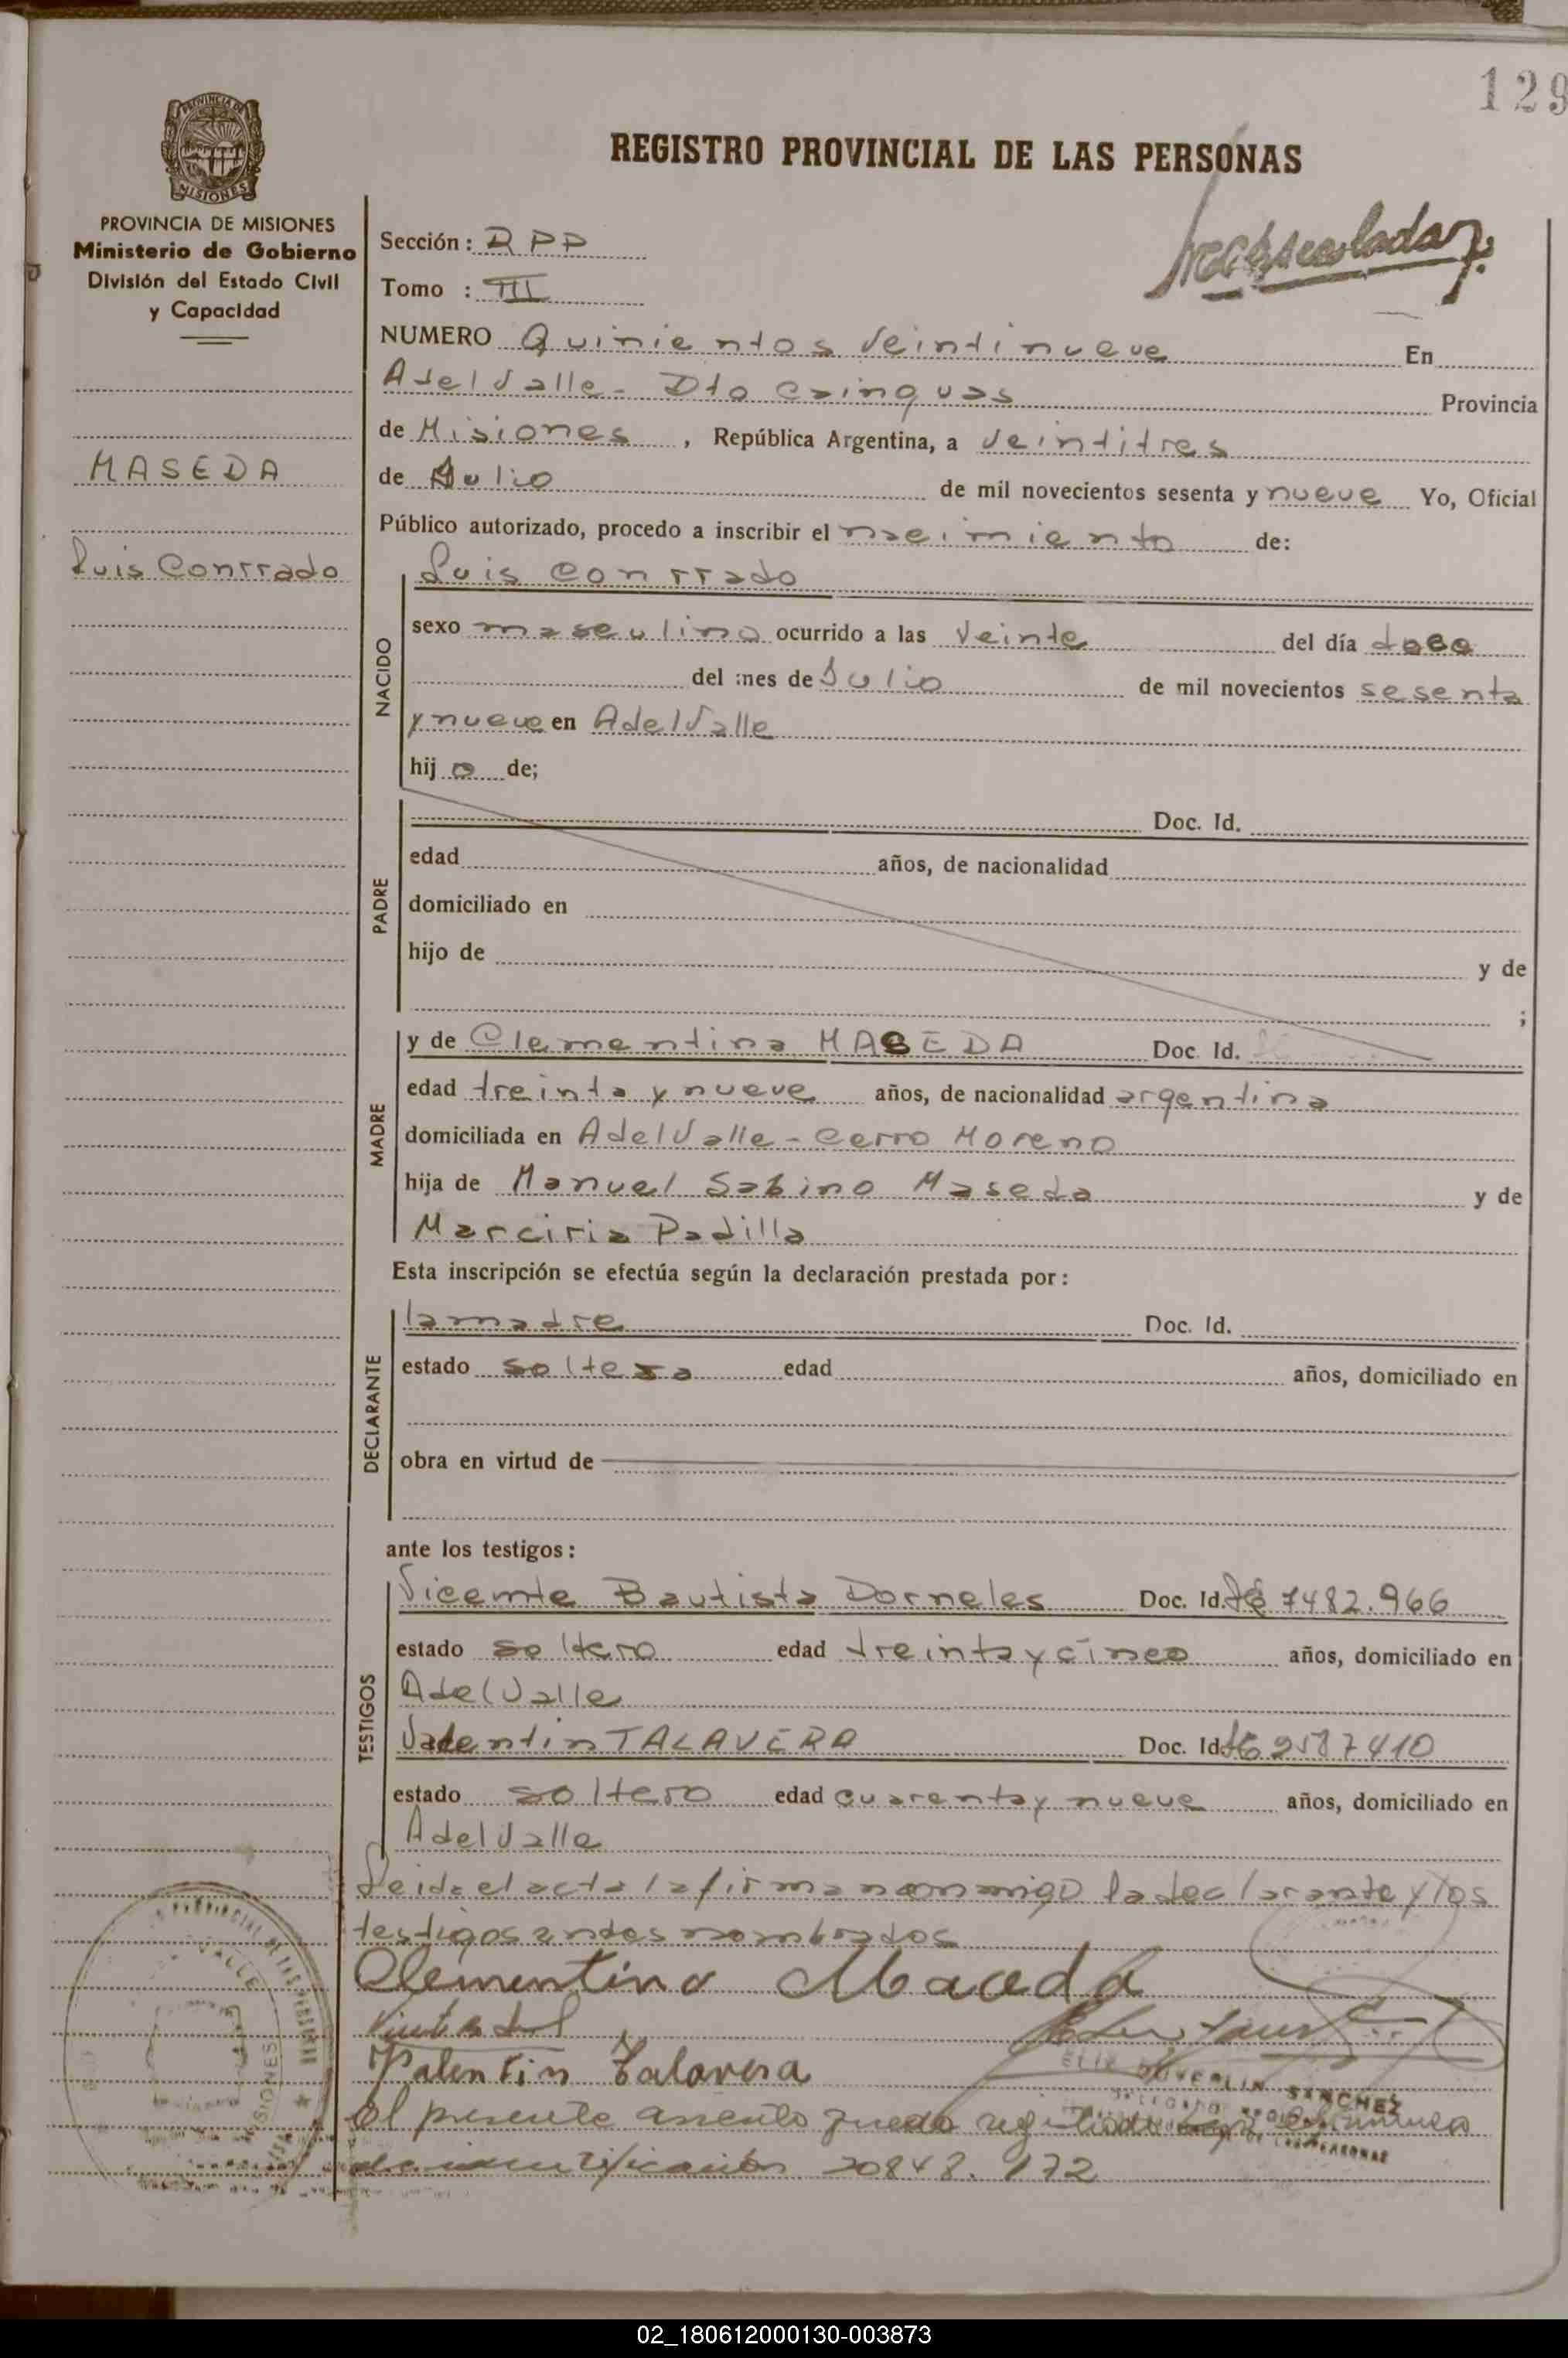 129
PROVINCIA DE
MISIONES
REGISTRO PROVINCIAL DE LAS PERSONAS
PROVINCIA DE MISIONES
Ministerio de Gobierno
División del Estado Civil
y Capacidad
Sección: RPP
Tomo : III
NUMERO Quinientos Veintinueve En
AdelValle - Dto Cainguas Provincia
de Misiones, República Argentina, a veintitres
MASEDA
de Julio de mil novecientos sesenta y nueve Yo, Oficial
Público autorizado, procedo a inscribir el nacimiento de:
Luis Conrrado
Luis Conrrado
NACIDO
sexo masculino ocurrido a las Veinte del día doce
del mes de Julio de mil novecientos sesenta
y nueve en AdelValle
hijo de;
PADRE
Doc. Id.
edad años, de nacionalidad
domiciliado en
hijo de y de
;
MADRE
y de Clementina MASEDA Doc. Id.
edad treinta y nueve años, de nacionalidad argentina
domiciliada en AdelValle - Cerro Moreno
hija de Manuel Sabino Maseda y de
Marciria Padilla
Esta inscripción se efectúa según la declaración prestada por:
DECLARANTE
la madre Doc. Id.
estado soltera edad años, domiciliado en
obra en virtud de
ante los testigos:
TESTIGOS
Vicente Bautista Dorneles Doc. Id. 7482.966
estado soltero edad treinta y cinco años, domiciliado en
AdelValle
Valentin TALAVERA Doc. Id. 2587410
estado soltero edad cuarenta y nueve años, domiciliado en
AdelValle
Leida el acta la firman conmigo la declarante y los
testigos antes nombrados
Clementina Maceda
Valentin Talavera
SANCHEZ
El presente asiento queda
20848.172
02_180612000130-003873